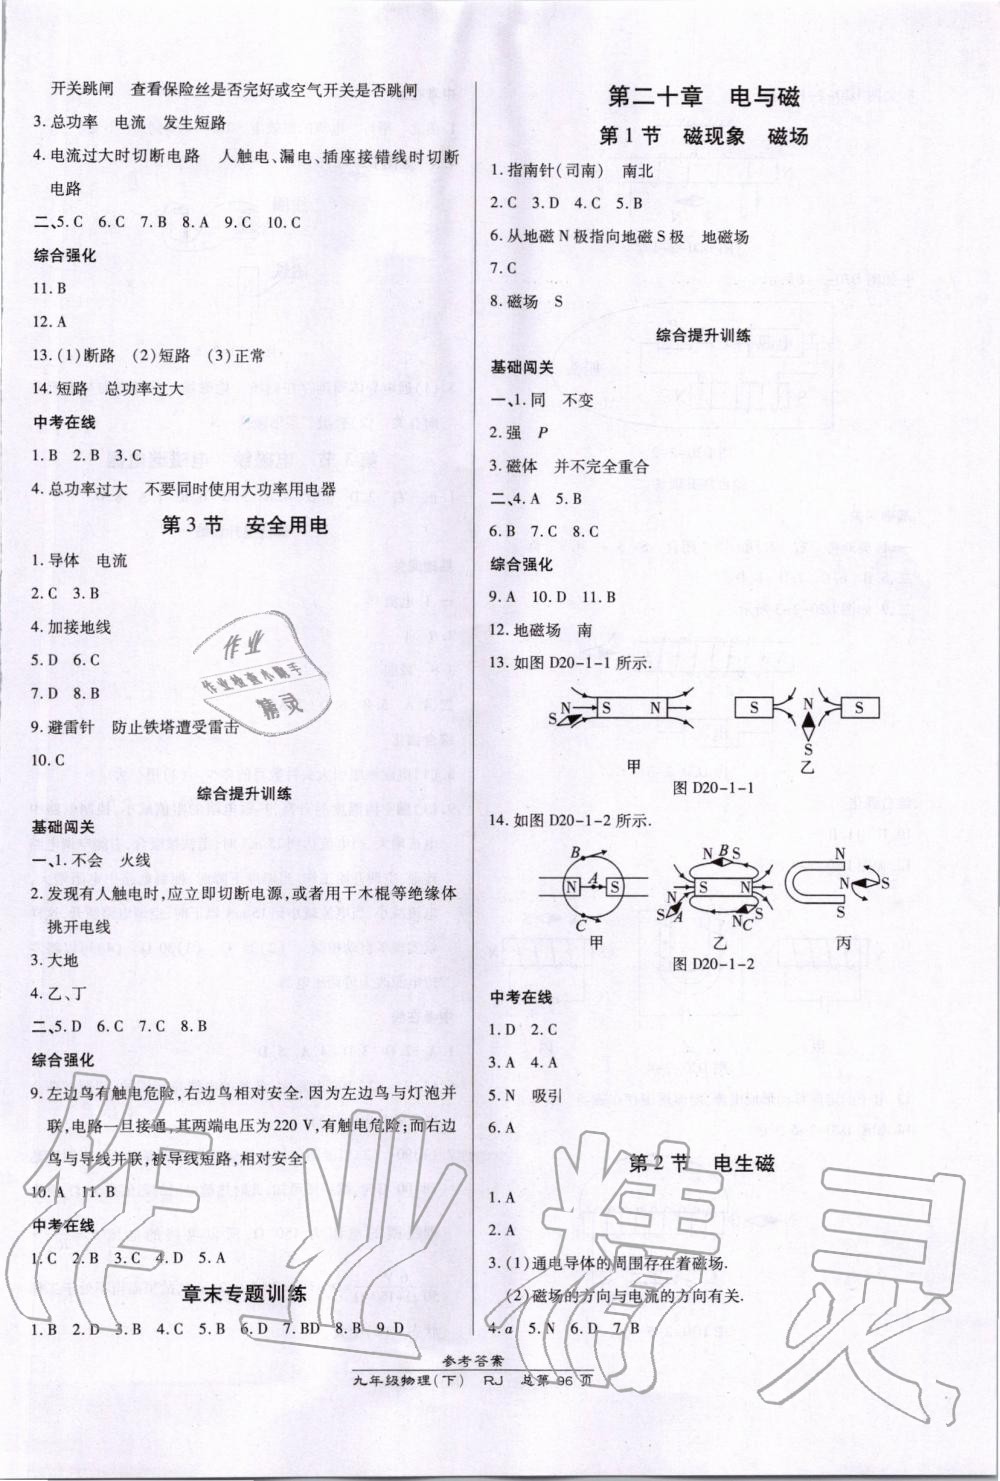 开关跳闸　查看保险丝是否完好或空气开关是否跳闸
3. 总功率　电流　发生短路
4. 电流过大时切断电路　人触电、漏电、插座接错线时切断
电路
二、5. C　6. C　7. B　8. A　9. C　10. C
综合强化
11. B
12. A
13. (1)断路　(2)短路　(3)正常
14. 短路　总功率过大
中考在线
1. B　2. B　3. C
4. 总功率过大　不要同时使用大功率用电器
第 3 节　安全用电
1. 导体　电流
2. C　3. B
4. 加接地线
5. D　6. C
7. D　8. B
9. 避雷针　防止铁塔遭受雷击
10. C
综合提升训练
基础闯关
一、1. 不会　火线
2. 发现有人触电时,应立即切断电源,或者用干木棍等绝缘体
挑开电线
3. 大地
4. 乙、丁
二、5. D　6. C　7. C　8. B
综合强化
9. 左边鸟有触电危险,右边鸟相对安全. 因为左边鸟与灯泡并
联,电路一旦接通,其两端电压为 220 V,有触电危险;而右边
鸟与导线并联,被导线短路,相对安全.
10. A　11. B
中考在线
1. C　2. B　3. C　4. D　5. A
章末专题训练
1. B　2. D　3. B　4. C　5. B　6. D　7. BD　8. B　9. D
第二十章　电与磁
第 1 节　磁现象　磁场
1. 指南针(司南)　南北
2. C　3. D　4. C　5. B
6. 从地磁 N 极指向地磁 S 极　地磁场
7. C
8. 磁场　S
综合提升训练
基础闯关
一、1. 同　不变
2. 强　P
3. 磁体　并不完全重合
二、4. A　5. B
6. B　7. C　8. C
综合强化
9. A　10. D　11. B
12. 地磁场　南
13. 如图 D20-1-1 所示.
N S N S
甲
S N S N S
乙
图 D20-1-1
14. 如图 D20-1-2 所示.
B A N S C
甲
N B S S N S A N C
乙
N N S S
丙
图 D20-1-2
中考在线
1. D　2. C
3. A　4. A
5. N　吸引
6. A
第 2 节　电生磁
1. A
2. A
3. (1)通电导体的周围存在着磁场.
(2)磁场的方向与电流的方向有关.
4. a　5. N　6. D　7. B
参考答案
九年级物理(下)　RJ　总第 96 页
作业
作业检查小助手
精灵
作业精灵